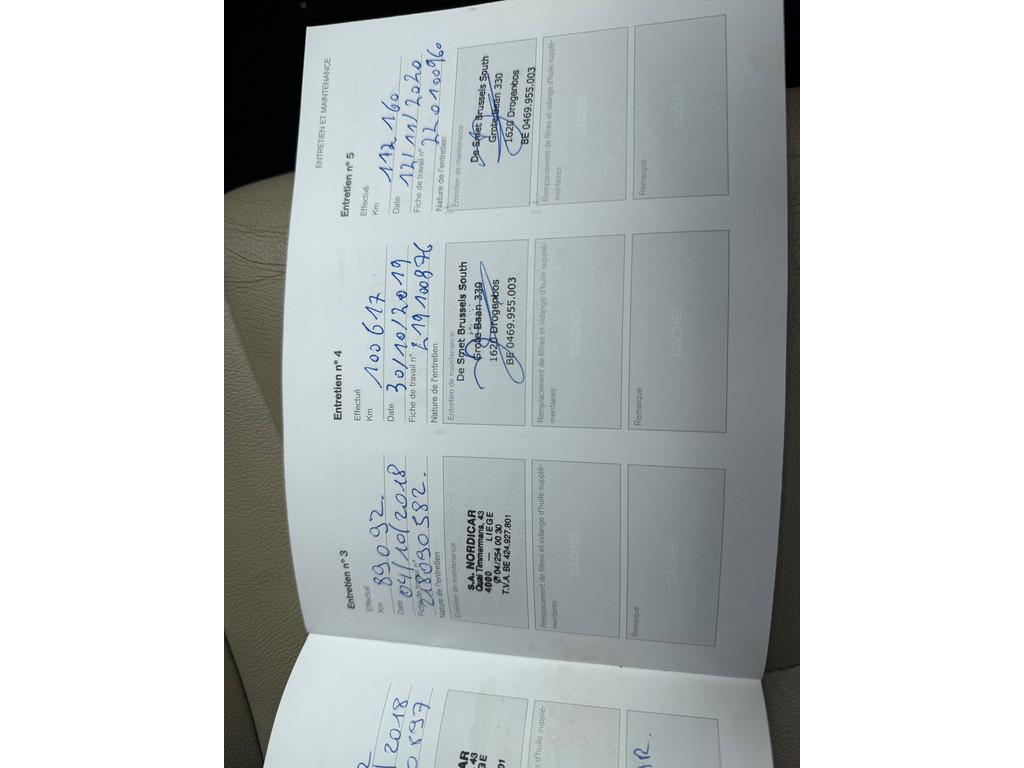 ENTRETIEN ET MAINTENANCE
Entretien n° 3
Effectué
Km 89092.
Date 04/10/2018
Fiche de travail n° 218090582.
Nature de l'entretien
Entretien de maintenance
S.A. NORDICAR
Quai Timmermans, 43
4000 — LIEGE
Ø 04/254 00 30
T.V.A. BE 424.927.801
Remplacement de filtres et vidange d'huile supplé-
mentaires
CACHET
Remarque
CACHET
Entretien n° 4
Effectué
Km 100617
Date 30/10/2019
Fiche de travail n° 219100876
Nature de l'entretien
Entretien de maintenance
De Smet Brussels South
Grote Baan 330
1620 Drogenbos
BE 0469.955.003
Remplacement de filtres et vidange d'huile supplé-
mentaires
CACHET
Remarque
CACHET
Entretien n° 5
Effectué
Km 112160
Date 12/11/2020
Fiche de travail n° 220100960
Nature de l'entretien
Entretien de maintenance
De Smet Brussels South
Grote Baan 330
1620 Drogenbos
BE 0469.955.003
Remplacement de filtres et vidange d'huile supplé-
mentaires
CACHET
Remarque
CACHET
/2018
0897
AR
43
GE
01
d'huile supplé-
R.